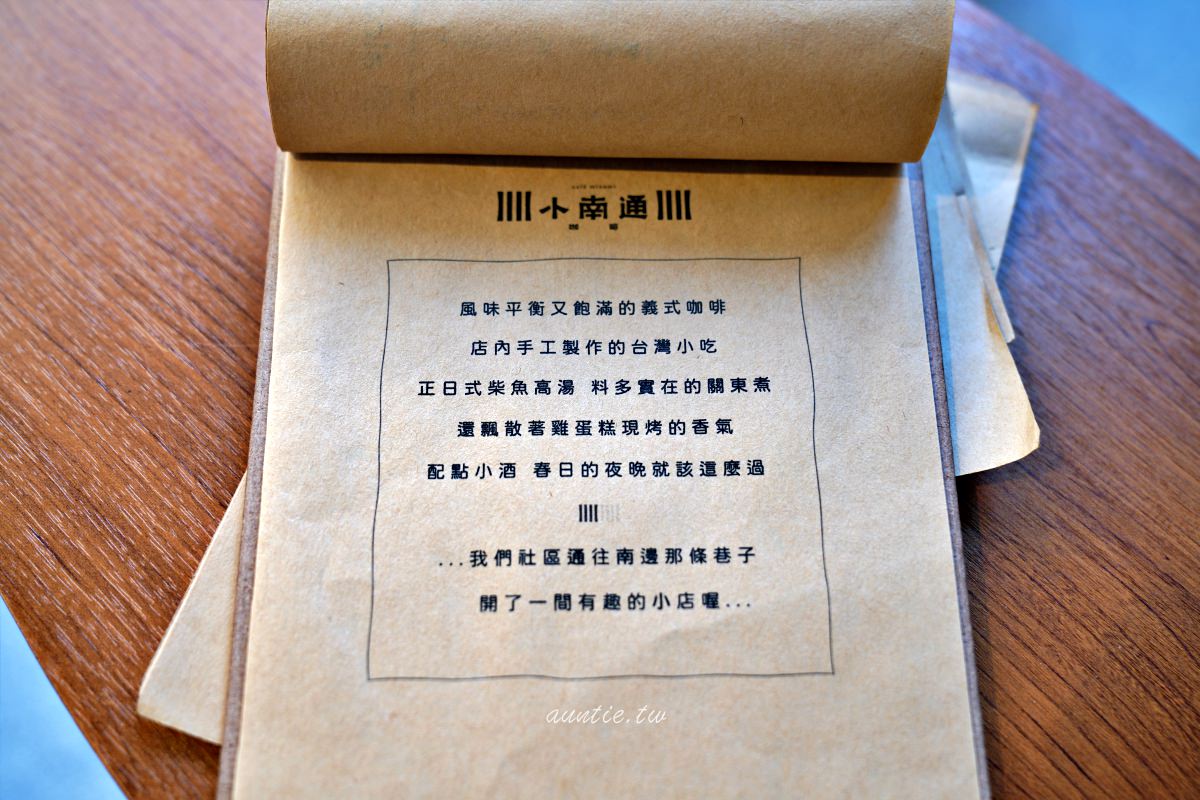 小南通
咖啡
風味平衡又飽滿的義式咖啡
店內手工製作的台灣小吃
正日式柴魚高湯 料多實在的關東煮
還飄散著雞蛋糕現烤的香氣
配點小酒 春日的夜晚就該這麼過
...我們社區通往南邊那條巷子
開了一間有趣的小店喔...
auntie.tw